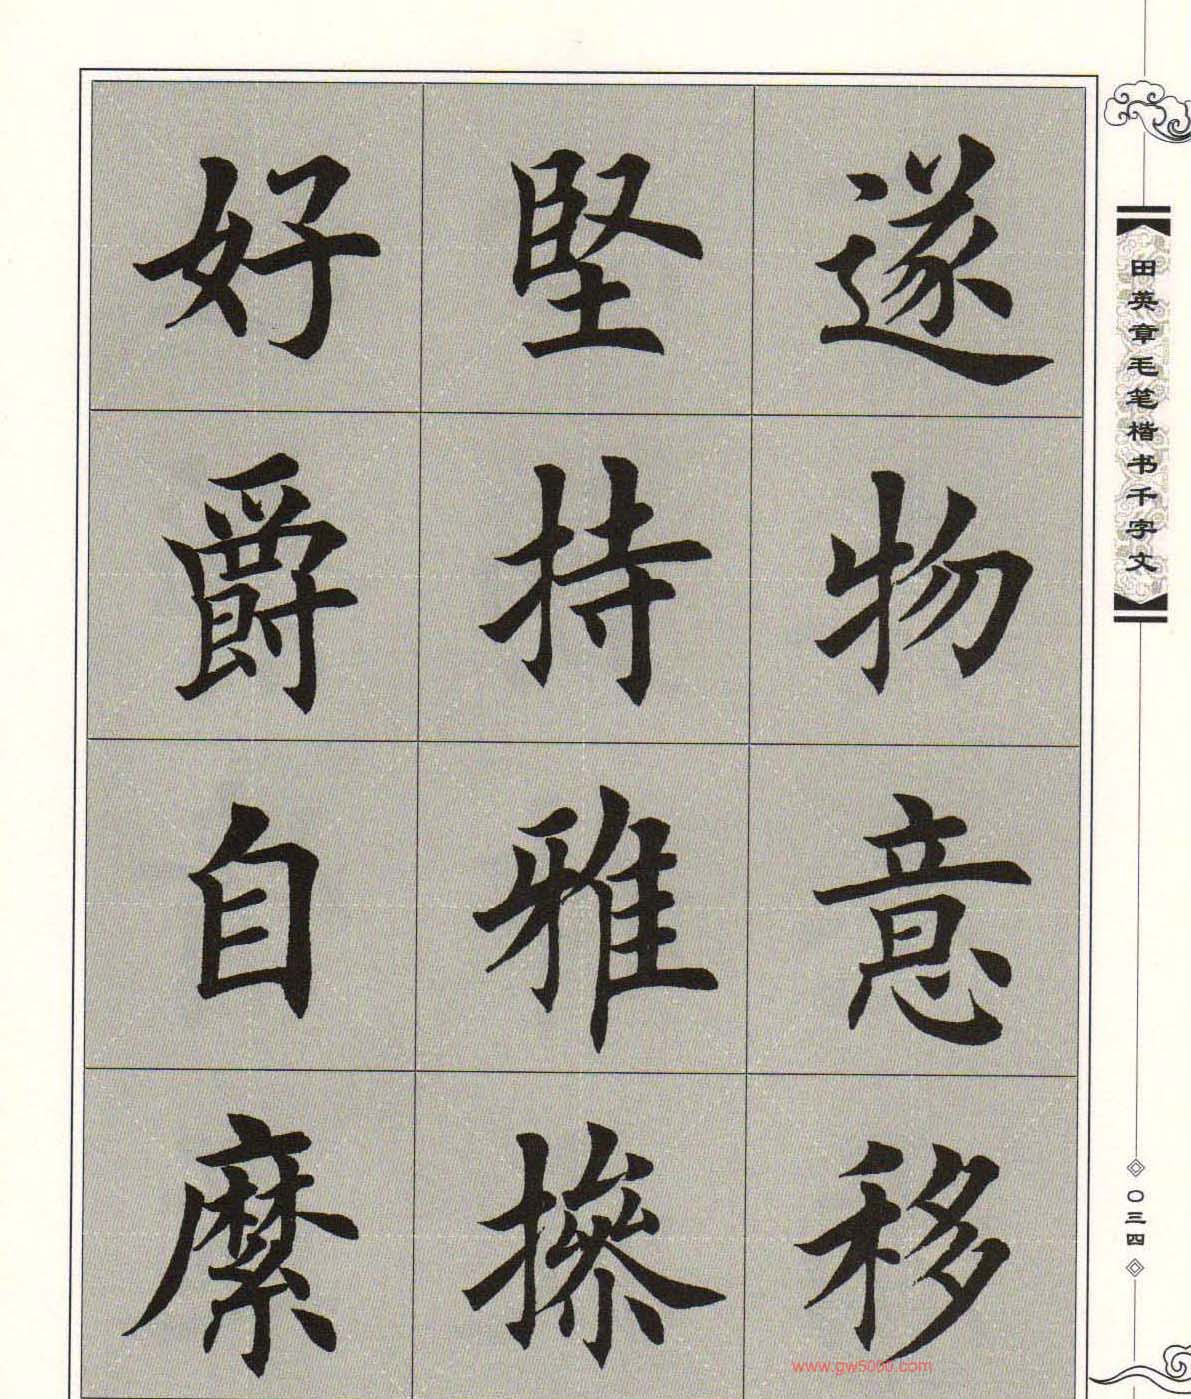 逐物意移
堅持雅操
好爵自縻
田英章毛笔楷书千字文
〇三四
www.gw5000.com